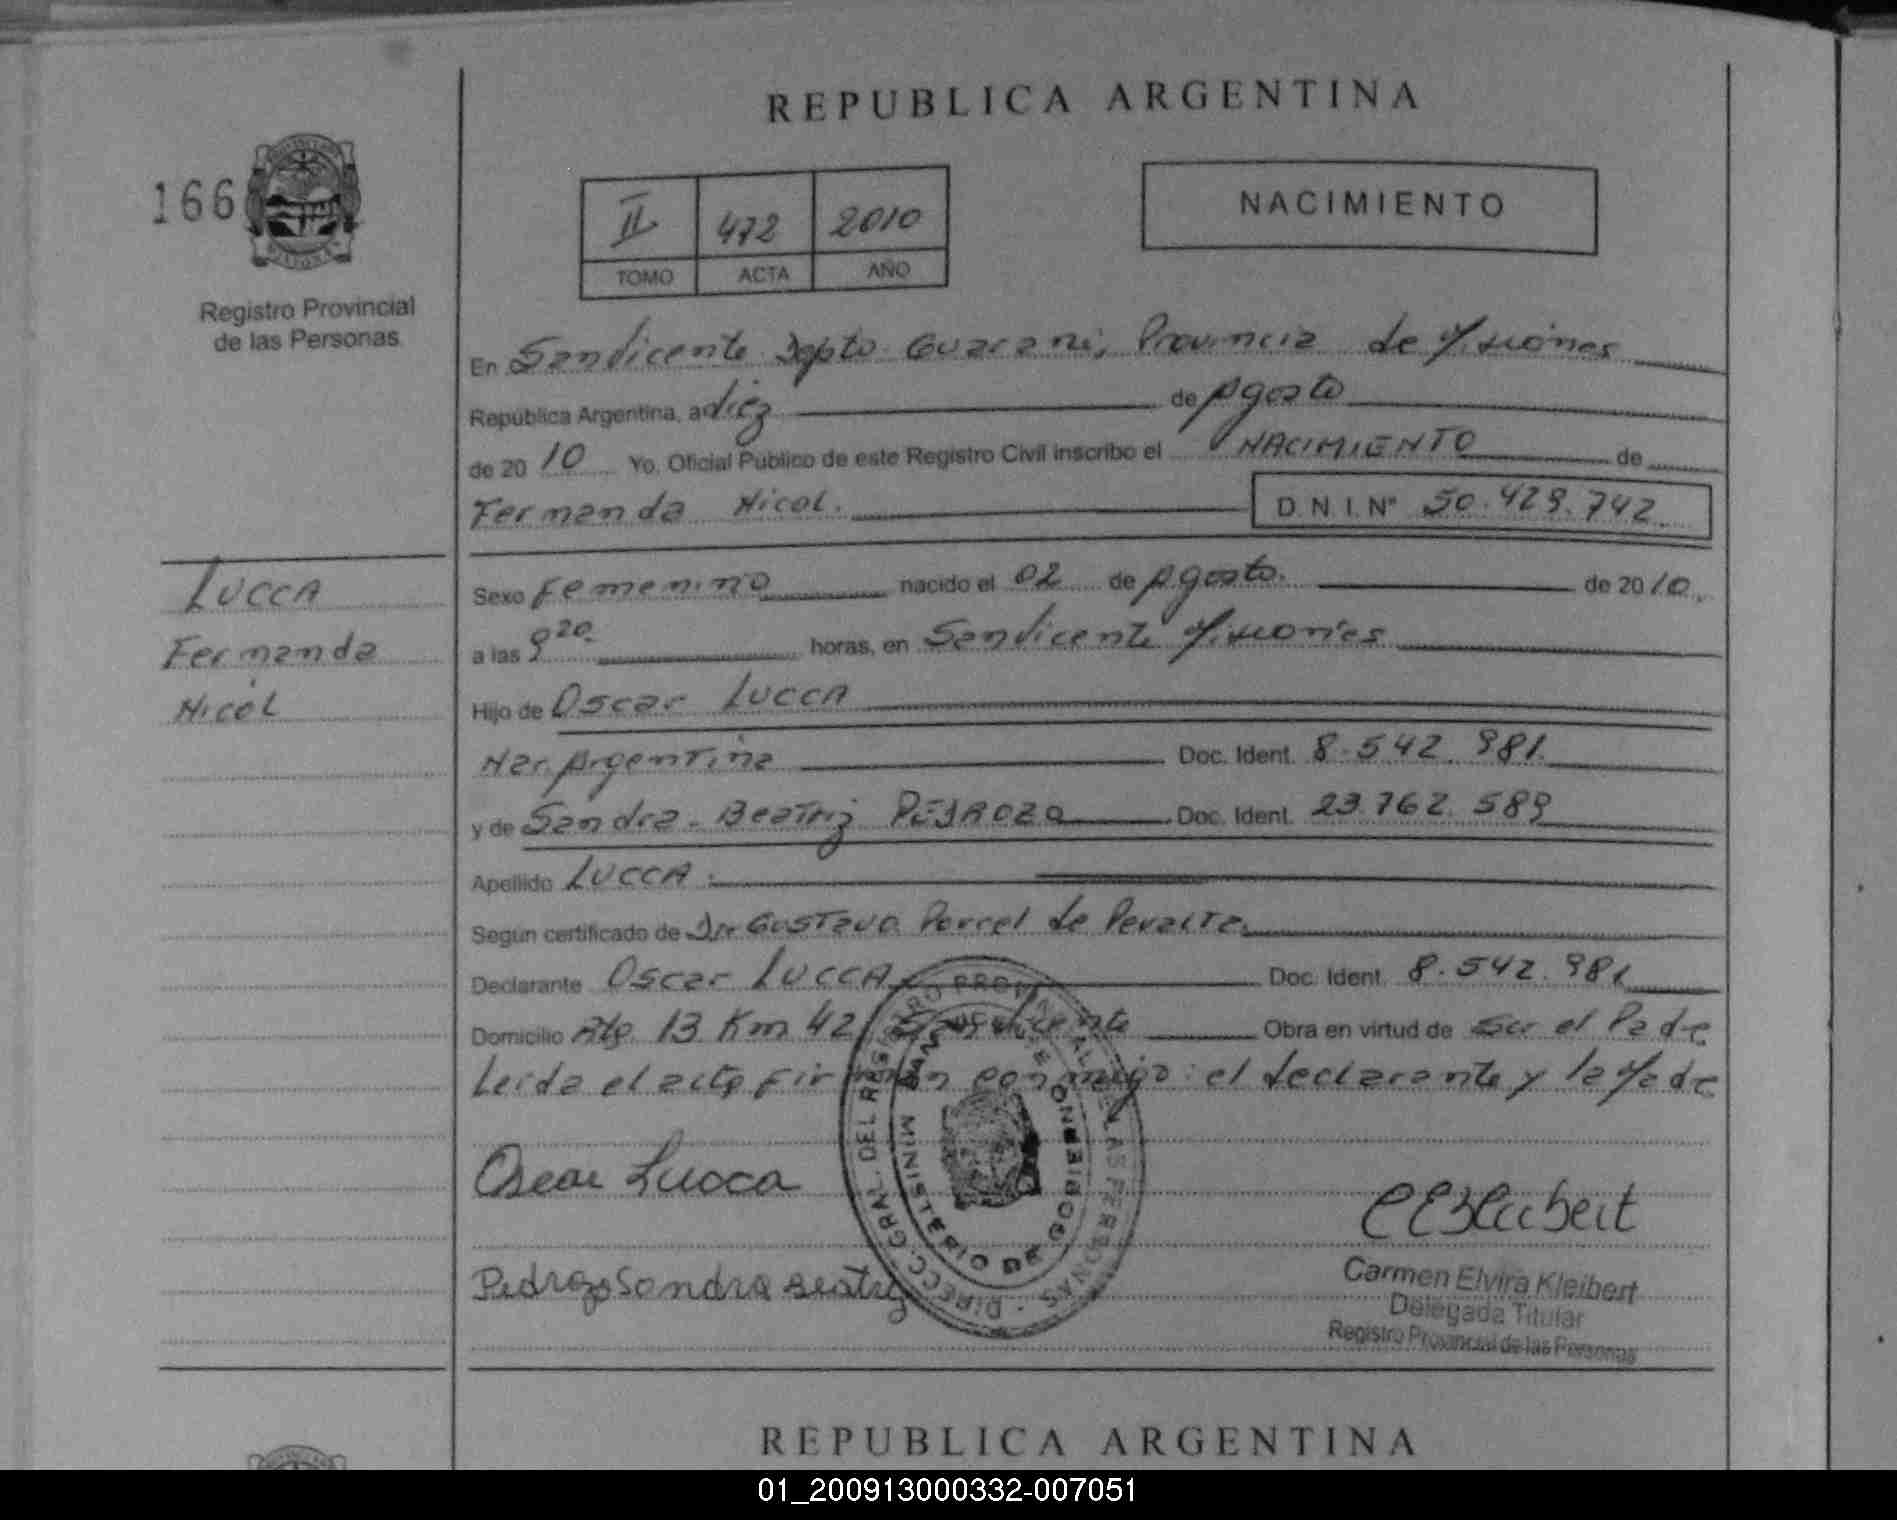 REPUBLICA ARGENTINA
166
II 472 2010
TOMO ACTA AÑO
NACIMIENTO
Registro Provincial
de las Personas
En San Vicente Depto Guarani, Provincia de Misiones
República Argentina, a diez de Agosto
de 2010 Yo, Oficial Público de este Registro Civil inscribo el NACIMIENTO de
Fernanda Nicol. D.N.I.Nº 50.429.742
LUCCA
Fernanda
Nicol
Sexo Femenino nacido el 02 de Agosto. de 2010
a las 9 20 horas, en San Vicente Misiones
Hijo de Oscar LUCCA
Nac. Argentina Doc. Ident. 8.542.981.
y de Sandra Beatriz PEDROZO Doc. Ident. 23.762.589
Apellido LUCCA.
Según certificado de Dr Gustavo Porcel de Peralta.
Declarante Oscar LUCCA Doc. Ident. 8.542.981
Domicilio Rta 13 Km 42 San Vicente Obra en virtud de Ser el Padre
Leida el acta firman conmigo: el declarante y la Madre
Oscar Lucca
CEKleibert
Pedrozo Sandra Beatriz
Carmen Elvira Kleibert
Delegada Titular
Registro Provincial de las Personas
DIRECC. GRAL. DEL REGISTRO PROVINCIAL DE LAS PERSONAS
MINISTERIO DE GOBIERNO
REPUBLICA ARGENTINA
01_200913000332-007051